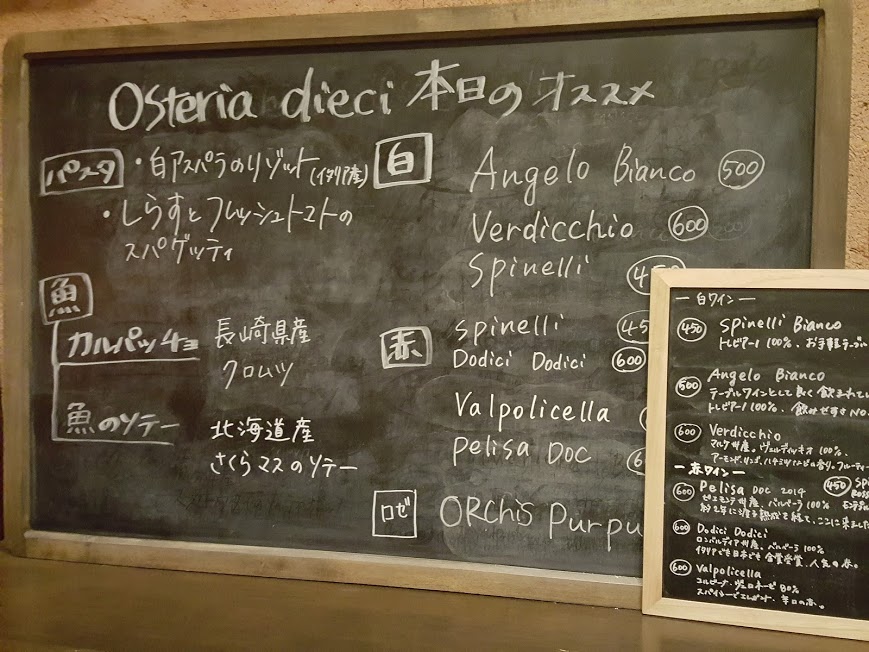 Osteria dieci 本日のオススメ
パスタ
・白アスパラのリゾット(イタリア産)
・しらすとフレッシュトマトの
スパゲッティ
魚
カルパッチョ 長崎県産
クロムツ
魚のソテー 北海道産
さくらマスのソテー
白 Angelo Bianco 500
Verdicchio 600
Spinelli 45
赤 spinelli 45
Dodici Dodici 600
Valpolicella
Pelisa DOC 6
ロゼ ORChis Purpu
ー白ワインー
450 Spinelli Bianco
トレビアーノ 100%、お手軽テーブル
500 Angelo Bianco
テーブルワインとして良く飲まれてい
トレビアーノ100%、飲みやすさNO.
600 Verdicchio
マルケ州産。ヴェルディッキオ 100%
アーモンド、リンゴ、ハチミツ 香り。フルーティー
ー赤ワインー
600 Pelisa DOC 2014
ピエモンテ州産、バルベーラ 100%
450 Sp
Ross
モンテプル
600 Dodici Dodici
ロンバルディア州産、バルベーラ 100%
イタリアでも日本でも金賞受賞、人気の赤。
600 Valpolicella
コルビーナ・ヴェロネーゼ 80%
スパイシーでエレガント、辛口の赤。